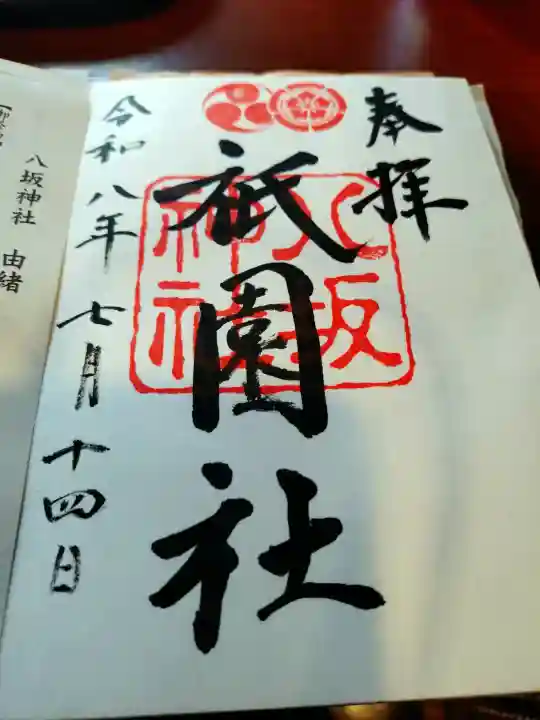 奉拝
八坂神社
祇園社
令和八年七月十四日
八坂神社 由緒